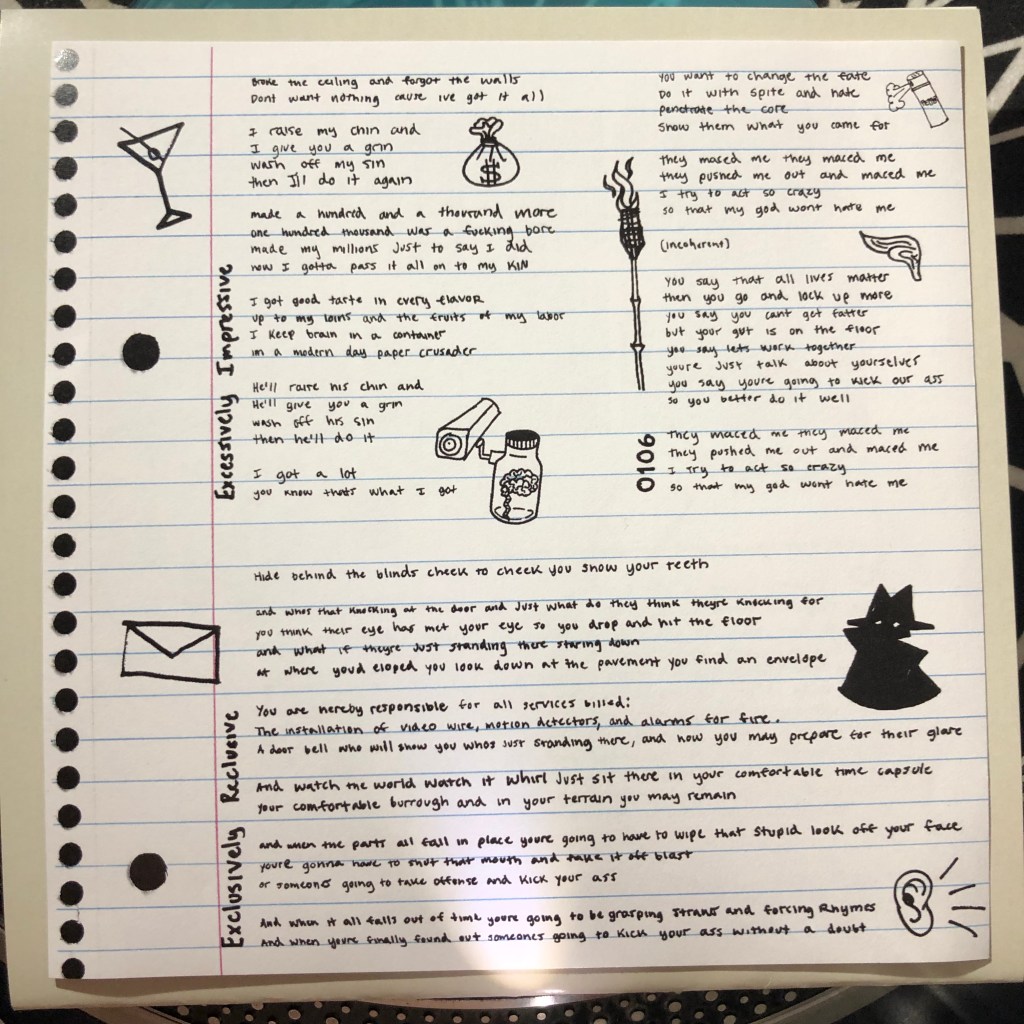 Excessively Impressive
Broke the ceiling and forgot the walls
Dont want nothing cause ive got it all
I raise my chin and
I give you a grin
wash off my sin
then I'll do it again
made a hundred and a thousand more
one hundred thousand was a fucking bore
made my millions just to say I did
now I gotta pass it all on to my KIN
I got good taste in every flavor
up to my loins and the fruits of my labor
I keep brain in a container
im a modern day paper crusader
He'll raise his chin and
He'll give you a grin
wash off his sin
then he'll do it
I got a lot
you know thats what I got
$
0106
You want to change the fate
Do it with spite and hate
penetrate the core
show them what you came for
they maced me they maced me
they pushed me out and maced me
I try to act so crazy
so that my god wont hate me
(incoherent)
You say that all lives matter
then you go and lock up more
you say you cant get fatter
but your gut is on the floor
you say lets work together
youre just talk about yourselves
you say youre going to kick our ass
so you better do it well
They maced me they maced me
they pushed me out and maced me
I try to act so crazy
so that my god wont hate me
Exclusively Reclusive
Hide behind the blinds cheek to cheek you show your teeth
and whos that knocking at the door and just what do they think theyre knocking for
you think their eye has met your eye so you drop and hit the floor
and what if theyre just standing there staring down
at where youd eloped you look down at the pavement you find an envelope
You are hereby responsible for all services billed:
The installation of video wire, motion detectors, and alarms for fire.
A door bell who will show you whos just standing there, and how you may prepare for their glare
And watch the world watch it whirl just sit there in your comfortable time capsule
your comfortable burrough and in your terrain you may remain
and when the parts all fall in place youre going to have to wipe that stupid look off your face
youre gonna have to shut that mouth and take it off blast
or someones going to take offense and kick your ass
And when it all falls out of time youre going to be grasping straws and forcing Rhymes
And when youre finally found out someones going to kick your ass without a doubt